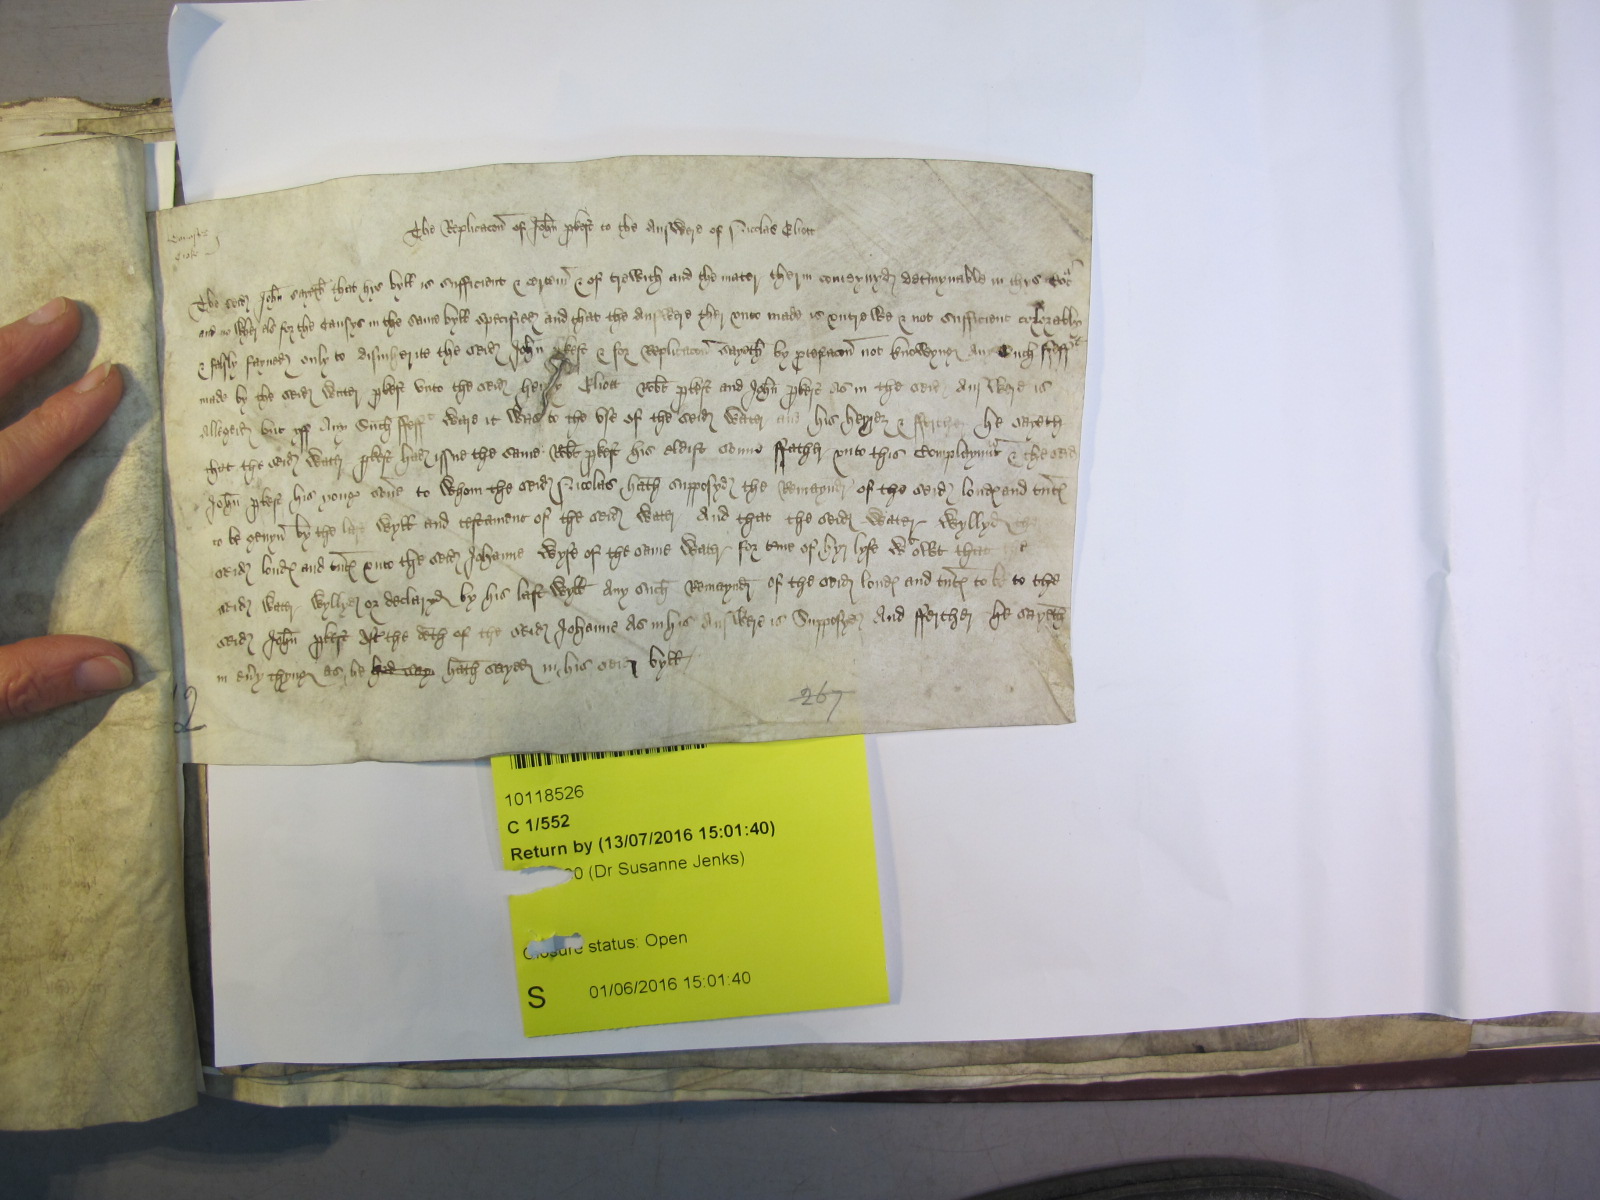 The Replicacon of John pkest to the Answere of Nicolas Eliott
The seid John sayeth that hys byll is sufficient & certein & of trewith and the mater therin conteynyd determynable in thys
and no wher els for the causys in the same byll specified and that the answere ther unto made is untrewe & not sufficient colorably
& falsly fayned only to disinherite the seid John pkest & for Replicacon sayeth by protestacon not knowyng any such feoff
made by the seid Water pkest unto the seid henry Eliott Robt pkest and John pkest as in the seid answere is
allegeid but yff any such feoff were it was to the use of the seid Water and his heyrez & ferther he sayeth
that the seid Water pkest had issue the same Robt pkest his eldist sonne ffather unto this Compleynunt & the seid
John pkest his yonger sone to whom the seid Nicolas hath supposyd the Remaynder of the seid londes and tentes
to be gevyn by the last wyll and testament of the seid Water And that the seid Water Wyllyd the
seid londes and tentes unto the seid Johanne wyfe of the same Water for time of hyr lyfe wtowt that the
seid Water Wyllyd or declaryd by his last wyll any such Remaynder of the seid londes and tentes to be to the
seid John pkest aft the deth of the seid Johanne as in his answere is supposyd And fferther he sayeth
in every thyng as he hath sayed in his seid byll
267
10118526
C 1/552
Return by (13/07/2016 15:01:40)
0 (Dr Susanne Jenks)
Closure status: Open
S 01/06/2016 15:01:40